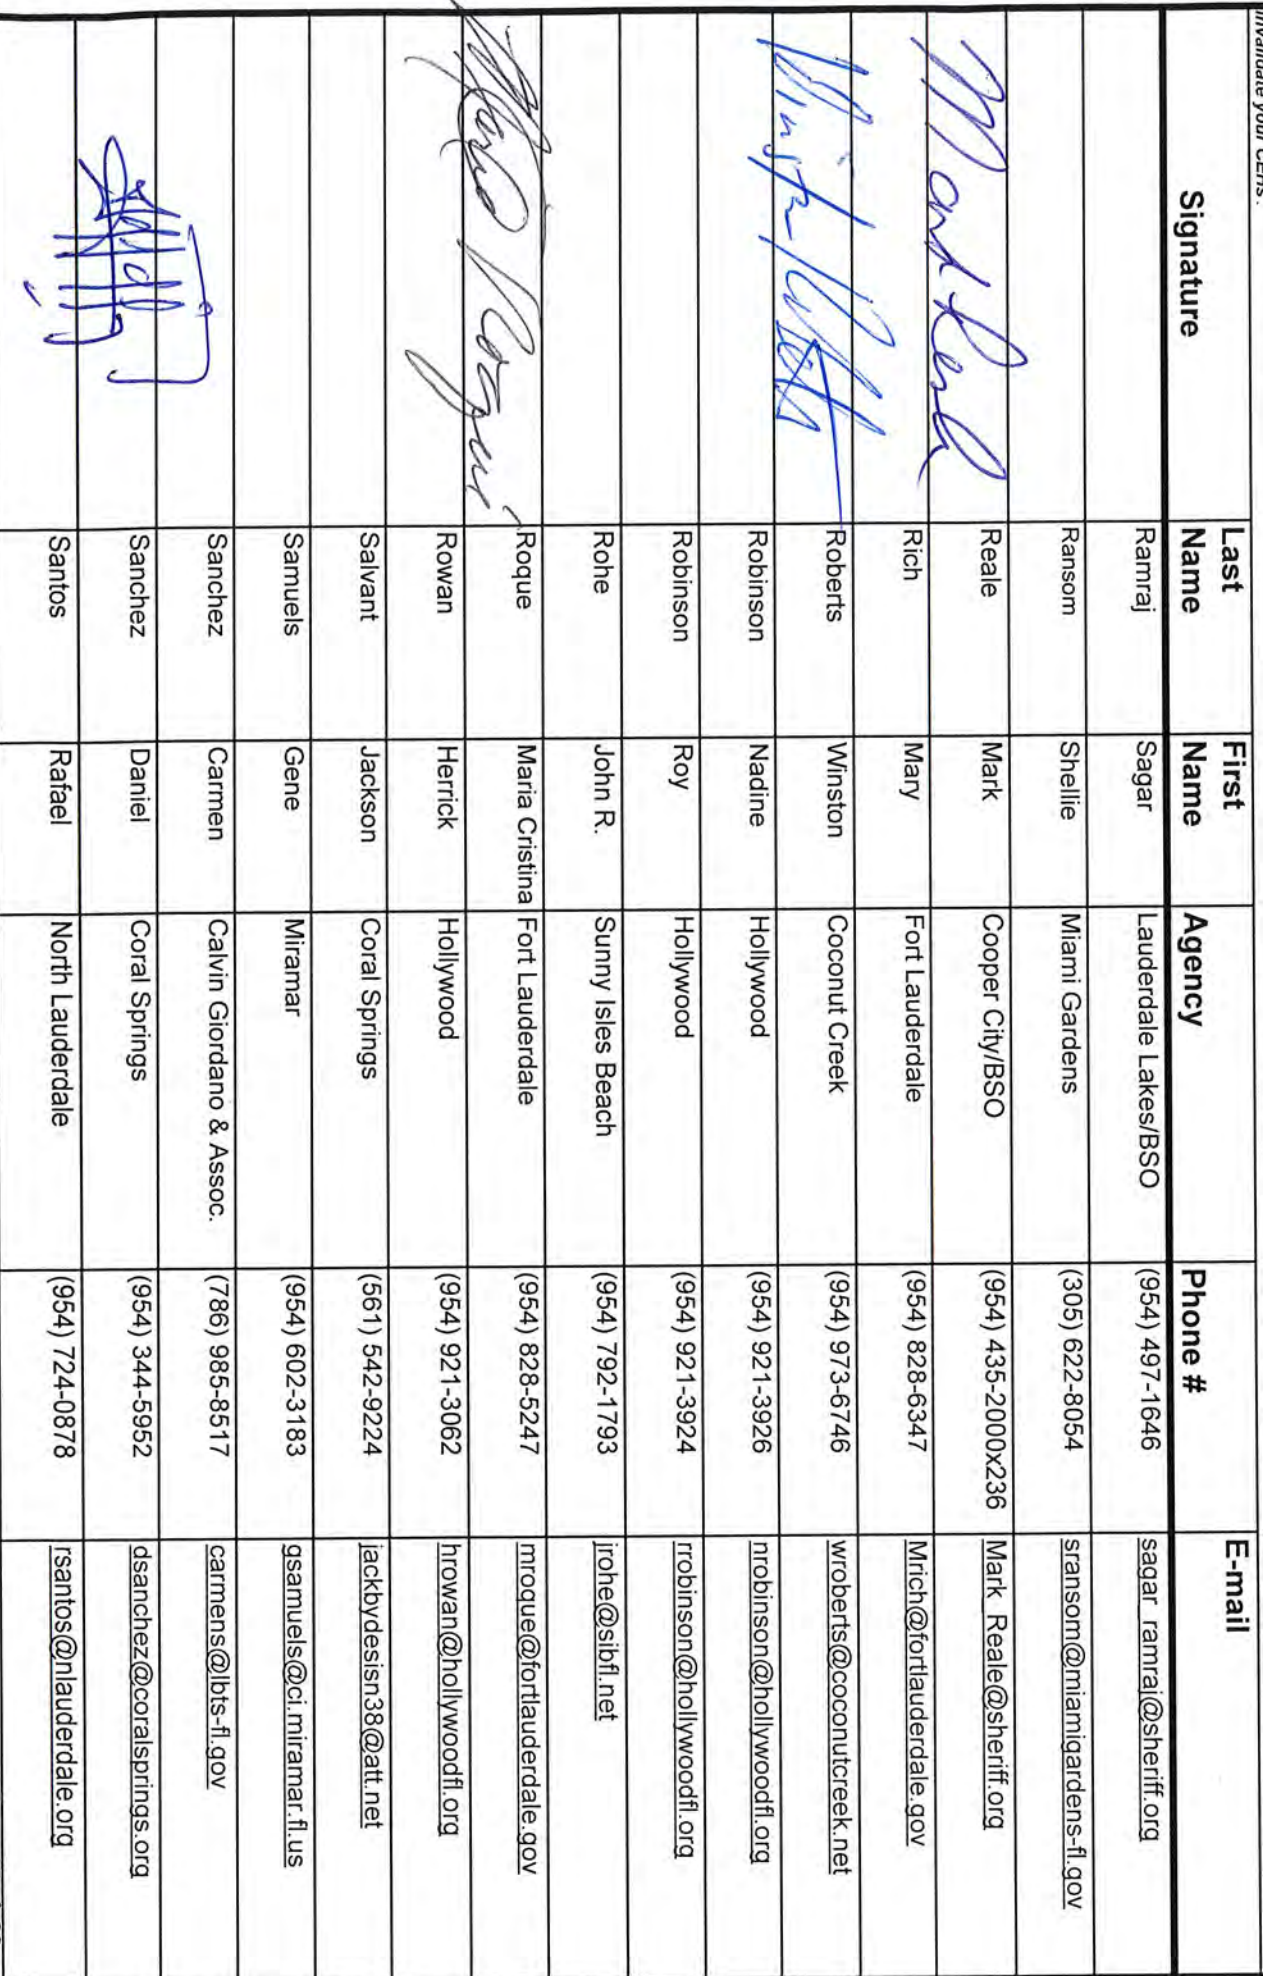 invalidate your CEHs.
Signature Last Name First Name Agency Phone # E-mail
Ramraj Sagar Lauderdale Lakes/BSO (954) 497-1646 sagar_ramraj@sheriff.org
Ransom Shellie Miami Gardens (305) 622-8054 sransom@miamigardens-fl.gov
Mark Reale Reale Mark Cooper City/BSO (954) 435-2000x236 Mark_Reale@sheriff.org
Rich Mary Fort Lauderdale (954) 828-6347 Mrich@fortlauderdale.gov
Winston Roberts Roberts Winston Coconut Creek (954) 973-6746 wroberts@coconutcreek.net
Robinson Nadine Hollywood (954) 921-3926 nrobinson@hollywoodfl.org
Robinson Roy Hollywood (954) 921-3924 rrobinson@hollywoodfl.org
Rohe John R. Sunny Isles Beach (954) 792-1793 jrohe@sibfl.net
Roque Maria Cristina Fort Lauderdale (954) 828-5247 mroque@fortlauderdale.gov
Rowan Herrick Hollywood (954) 921-3062 hrowan@hollywoodfl.org
Salvant Jackson Coral Springs (561) 542-9224 jackbydesisn38@att.net
Samuels Gene Miramar (954) 602-3183 gsamuels@ci.miramar.fl.us
Sanchez Carmen Calvin Giordano & Assoc. (786) 985-8517 carmens@lbts-fl.gov
Sanchez Daniel Coral Springs (954) 344-5952 dsanchez@coralsprings.org
Santos Rafael North Lauderdale (954) 724-0878 rsantos@nlauderdale.org